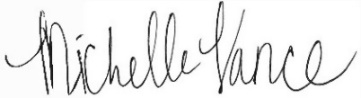 Michelle Vance